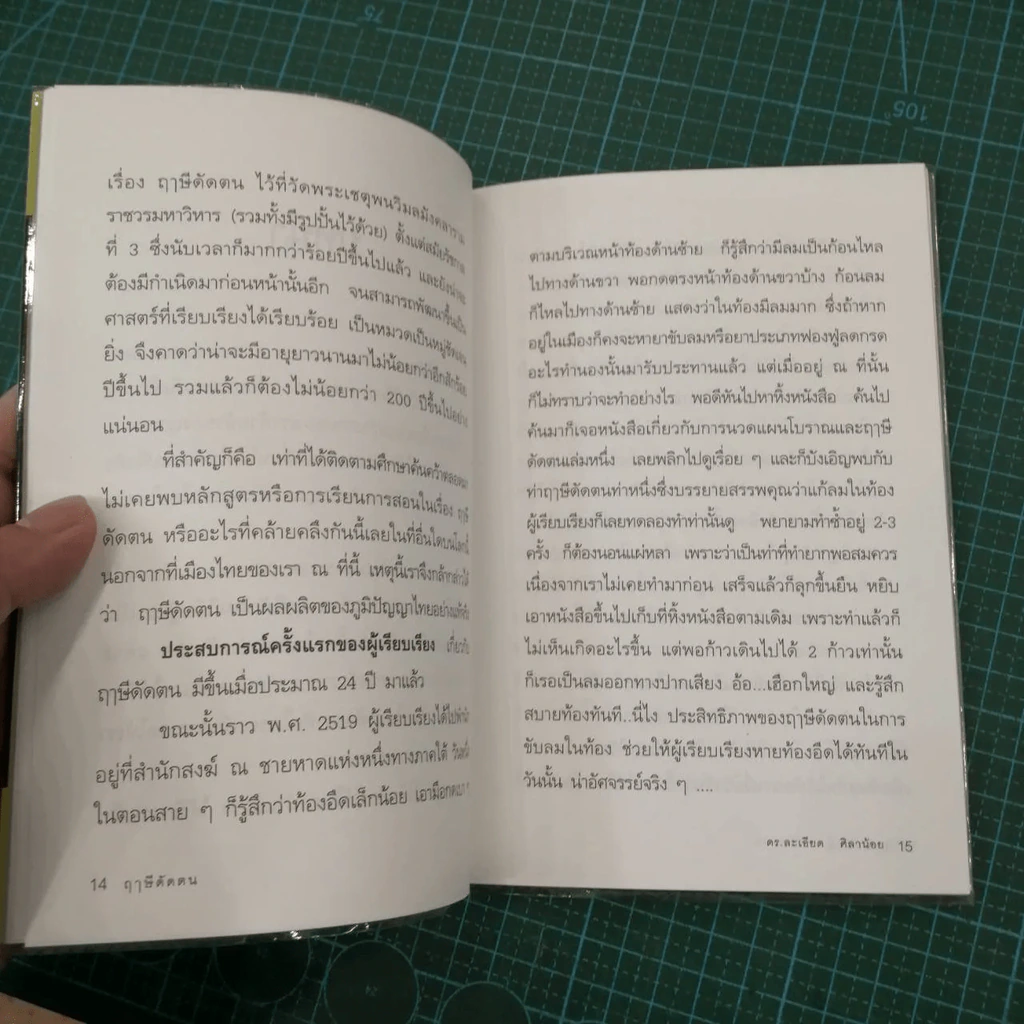 เรื่อง ฤๅษีดัดตน ไว้ที่วัดพระเชตุพนวิมลมังคลาราม
ราชวรมหาวิหาร (รวมทั้งมีรูปปั้นไว้ด้วย) ตั้งแต่สมัยรัชกาล
ที่ 3 ซึ่งนับเวลาก็มากกว่าร้อยปีขึ้นไปแล้ว และยังน่าจะ
ต้องมีกำเนิดมาก่อนหน้านั้นอีก จนสามารถพัฒนาขึ้นเป็น
ศาสตร์ที่เรียบเรียงได้เรียบร้อย เป็นหมวดเป็นหมู่ชัดเจน
ยิ่ง จึงคาดว่าน่าจะมีอายุยาวนานมาไม่น้อยกว่าอีกสักร้อย
ปีขึ้นไป รวมแล้วก็ต้องไม่น้อยกว่า 200 ปีขึ้นไปอย่าง
แน่นอน
ที่สำคัญก็คือ เท่าที่ได้ติดตามศึกษาค้นคว้าตลอดมา
ไม่เคยพบหลักสูตรหรือการเรียนการสอนในเรื่อง ฤๅษี
ดัดตน หรืออะไรที่คล้ายคลึงกันนี้เลยในที่อื่นใดบนโลกนี้
นอกจากที่เมืองไทยของเรา ณ ที่นี้ เหตุนี้เราจึงกล้ากล่าวได้
ว่า ฤๅษีดัดตน เป็นผลผลิตของภูมิปัญญาไทยอย่างแท้จริง
ประสบการณ์ครั้งแรกของผู้เรียบเรียง เกี่ยวกับ
ฤๅษีดัดตน มีขึ้นเมื่อประมาณ 24 ปี มาแล้ว
ขณะนั้นราว พ.ศ. 2519 ผู้เรียบเรียงได้ไปพำนัก
อยู่ที่สำนักสงฆ์ ณ ชายหาดแห่งหนึ่งทางภาคใต้ วันหนึ่ง
ในตอนสาย ๆ ก็รู้สึกว่าท้องอืดเล็กน้อย เอามือกดเบา ๆ
14 ฤๅษีดัดตน
ตามบริเวณหน้าท้องด้านซ้าย ก็รู้สึกว่ามีลมเป็นก้อนไหล
ไปทางด้านขวา พอกดตรงหน้าท้องด้านขวาบ้าง ก้อนลม
ก็ไหลไปทางด้านซ้าย แสดงว่าในท้องมีลมมาก ซึ่งถ้าหาก
อยู่ในเมืองก็คงจะหายาขับลมหรือยาประเภทฟองฟู่ลดกรด
อะไรทำนองนั้นมารับประทานแล้ว แต่เมื่ออยู่ ณ ที่นั้น
ก็ไม่ทราบว่าจะทำอย่างไร พอดีหันไปหาหิ้งหนังสือ ค้นไป
ค้นมาก็เจอหนังสือเกี่ยวกับการนวดแผนโบราณและฤๅษี
ดัดตนเล่มหนึ่ง เลยพลิกไปดูเรื่อย ๆ และก็บังเอิญพบกับ
ท่าฤๅษีดัดตนท่าหนึ่งซึ่งบรรยายสรรพคุณว่าแก้ลมในท้อง
ผู้เรียบเรียงก็เลยทดลองทำท่านั้นดู พยายามทำซ้ำอยู่ 2-3
ครั้ง ก็ต้องนอนแผ่หลา เพราะว่าเป็นท่าที่ทำยากพอสมควร
เนื่องจากเราไม่เคยทำมาก่อน เสร็จแล้วก็ลุกขึ้นยืน หยิบ
เอาหนังสือขึ้นไปเก็บที่หิ้งหนังสือตามเดิม เพราะทำแล้วก็
ไม่เห็นเกิดอะไรขึ้น แต่พอก้าวเดินไปได้ 2 ก้าวเท่านั้น
ก็เรอเป็นลมออกทางปากเสียง อ้อ...เฮือกใหญ่ และรู้สึก
สบายท้องทันที..นี่ไง ประสิทธิภาพของฤๅษีดัดตนในการ
ขับลมในท้อง ช่วยให้ผู้เรียบเรียงหายท้องอืดได้ทันทีใน
วันนั้น น่าอัศจรรย์จริง ๆ ....
ดร.ละเอียด ศิลาน้อย 15
75
105°